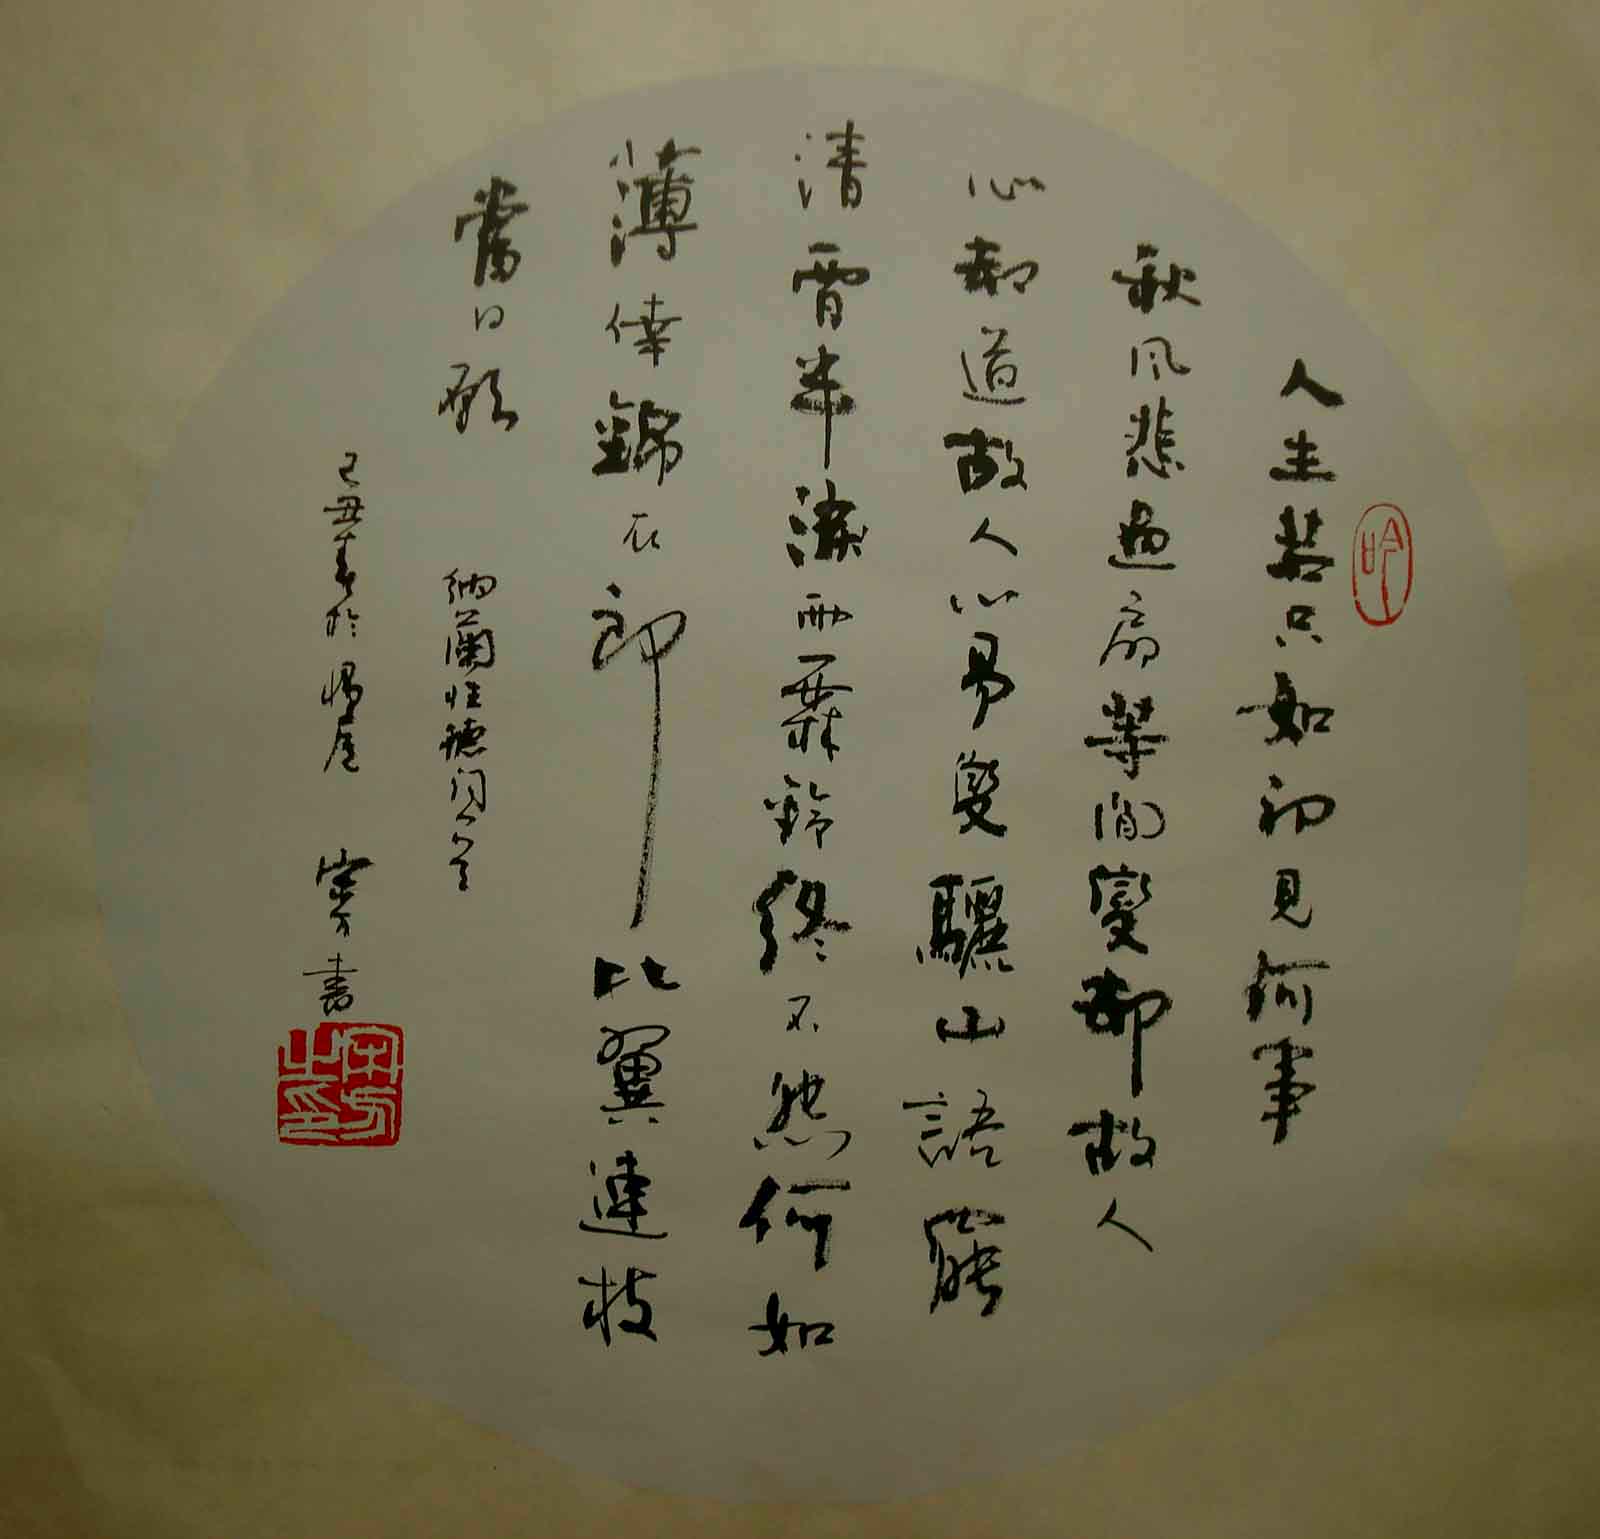 人生若只如初見何事
秋風悲過扇等閒變卻故人
心卻道故人心易變驪山語罷
清霄半淚雨霖鈴終不怨何如
薄倖錦衣郎比翼連枝
當日願
納蘭性德詞
己丑春於 書
之印